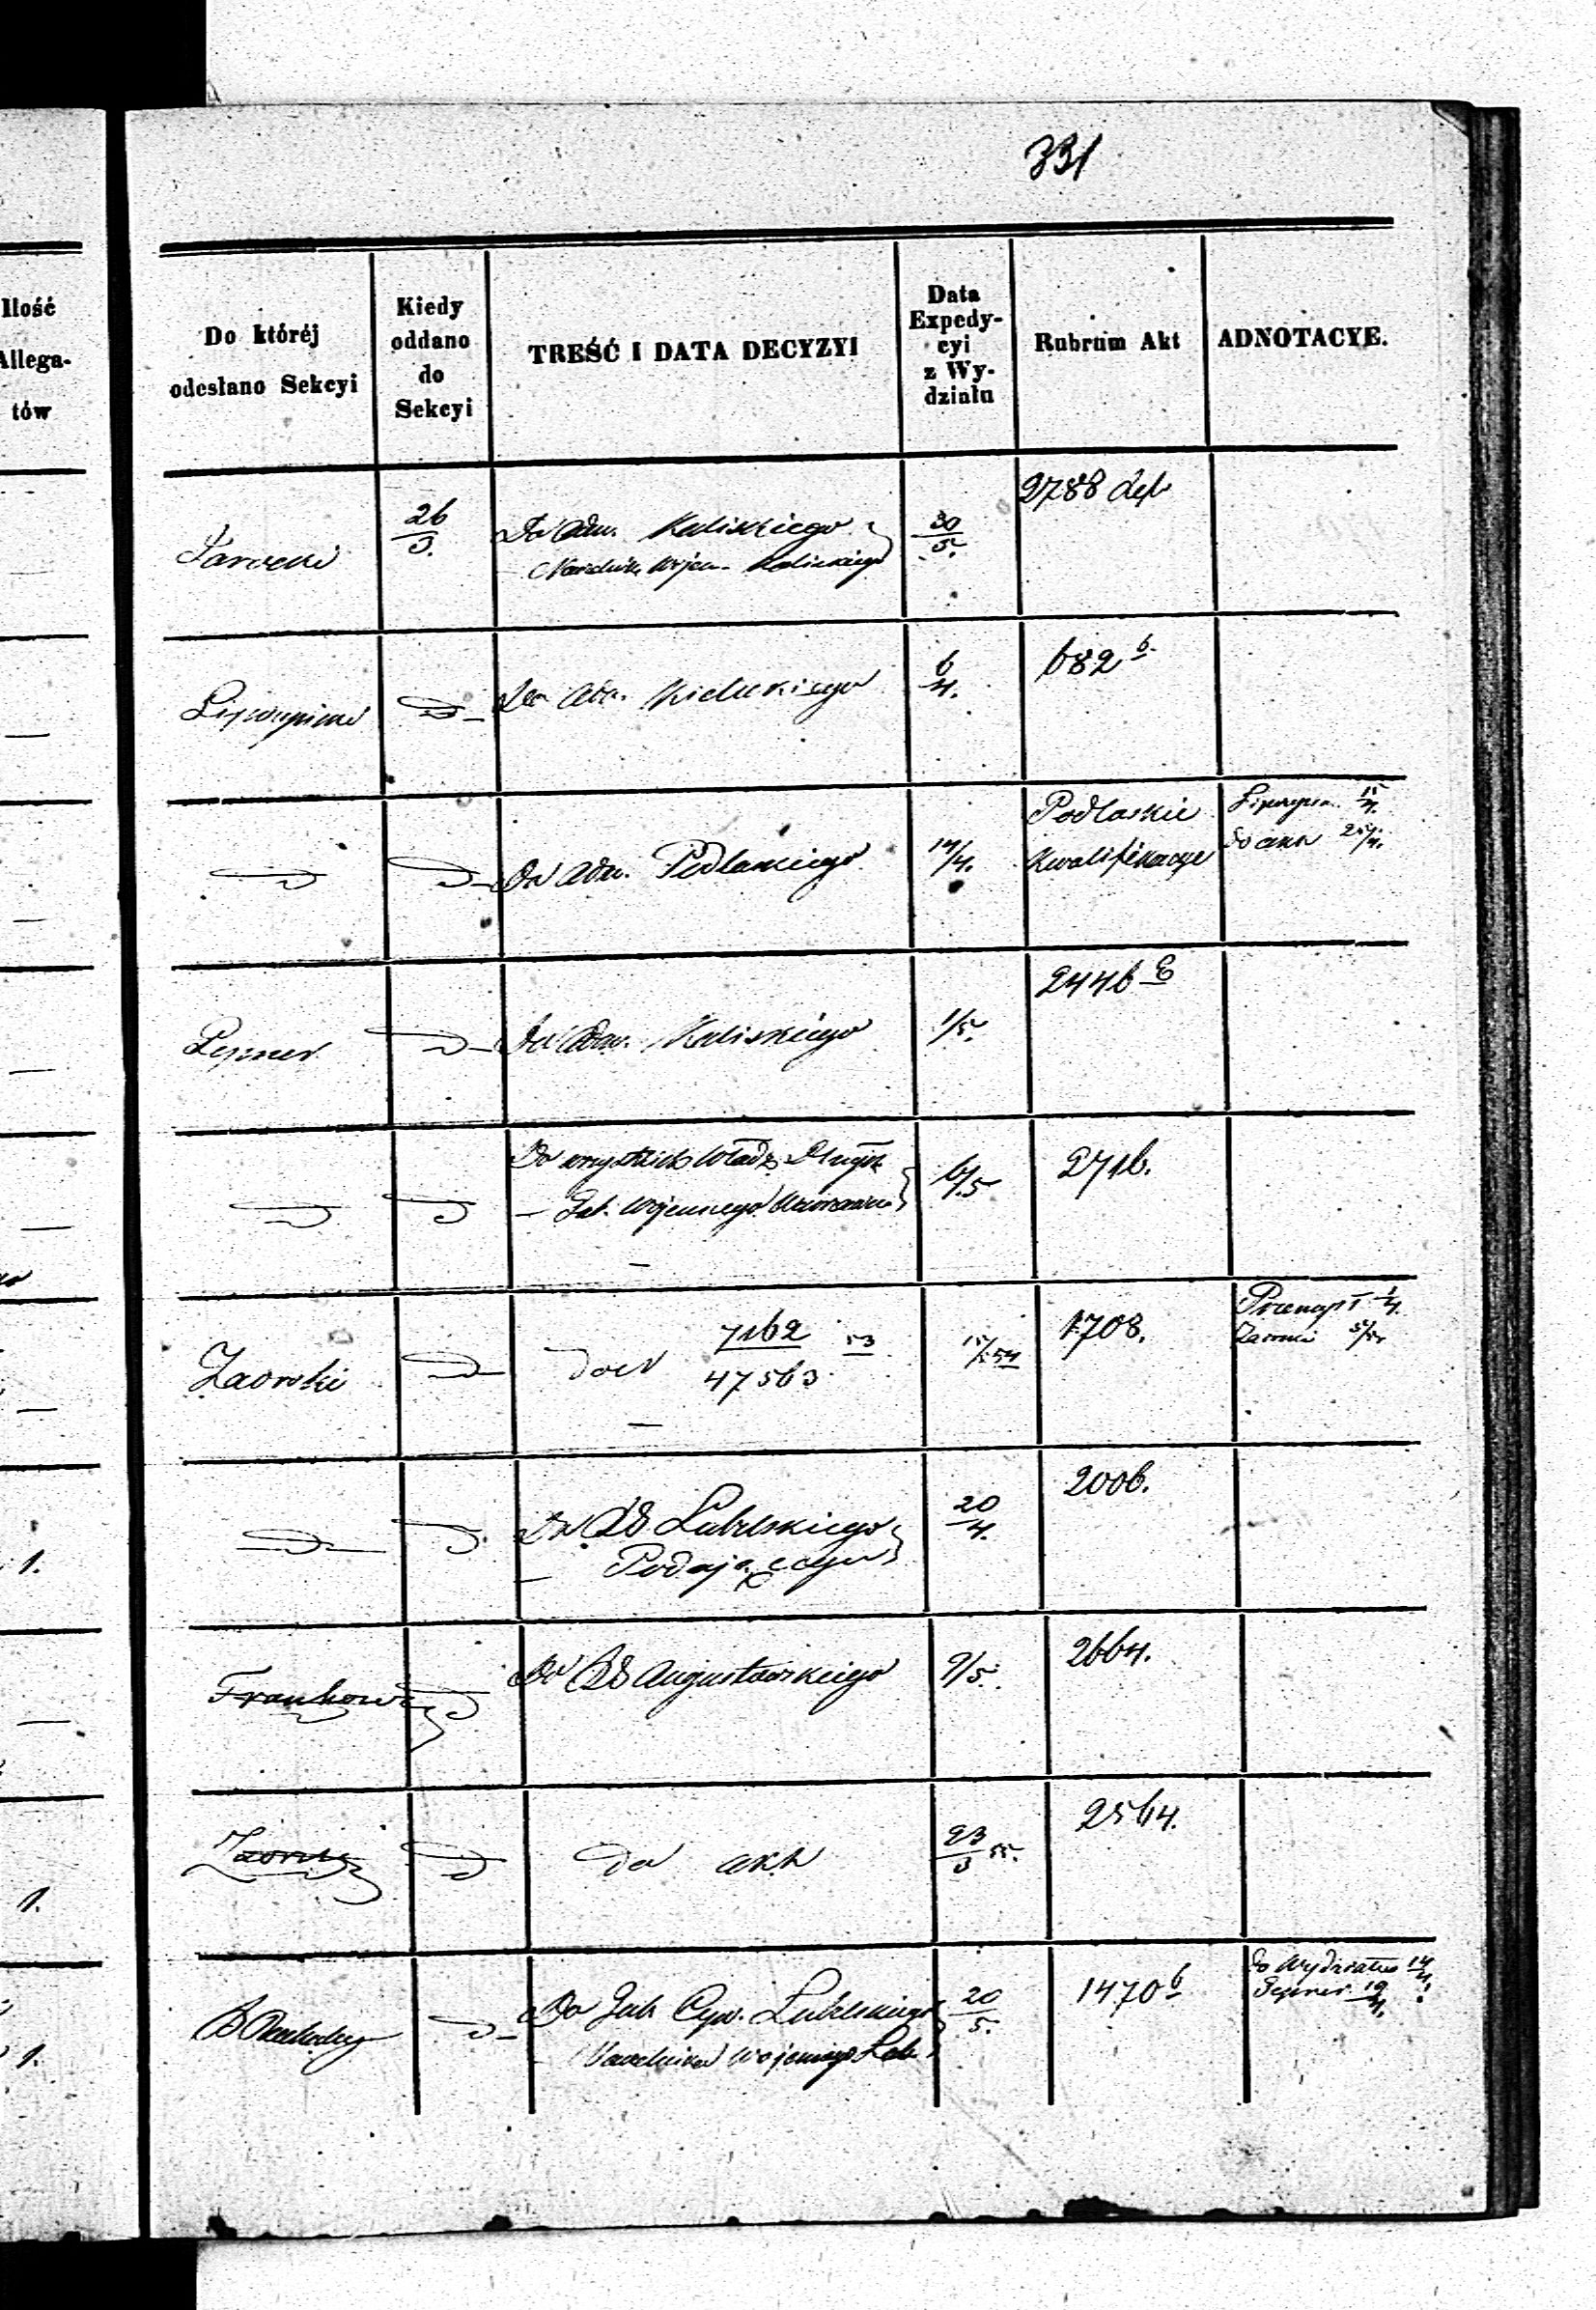 331
Ilość
Allega-
tów
Do któréj
odesłano Sekcyi
Kiedy
oddano
do
Sekcyi
TREŚĆ I DATA DECYZYI
Data
Expedy-
cyi
z Wy-
działu
Rubrum Akt
ADNOTACYE.
Jarocki
26/3.
Do Adm. Kaliskiego
Naczelnik Wojen. Kaliskiego
30/5.
2788
Do Adm. Kieleckiego
6/4.
682 b.
Do Adm. Podlaskiego
14/4.
Podlaskie
Kwalifikacye
15/4.
do akt 25/4.
Lepner
Do Adm. Kaliskiego
1/5.
2446 E
Do wszystkich Władz
Wojennego
6/5
2716.
Zaorski
do N 7162/47563 53
15/5 54
1708.
1/4.
5/5.
1.
Do RG Lubelskiego
Podającego
20/4.
2006.
Do RG Augustowskiego
9/5.
2664.
1.
do akt
23/3 55.
2564.
1.
Do Gub. Cyw. Lubelskiego
Naczelnika Wojennego Lub.
20/5.
1470 b
Do Wydziału 14/4.
Lepner 19/4.